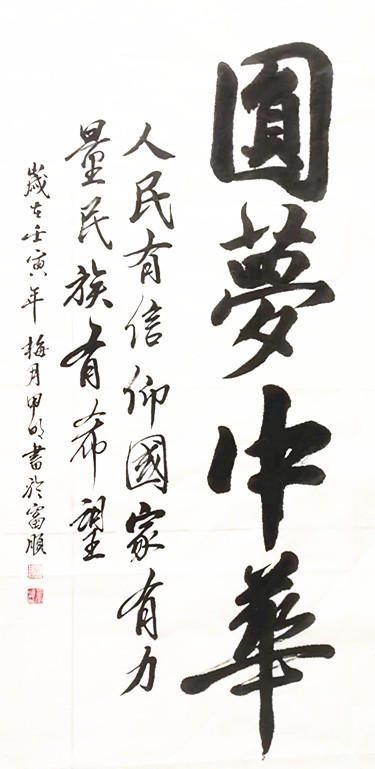 圓夢中華
人民有信仰國家有力
量民族有希望
歲在壬寅年梅月甲明書於富順